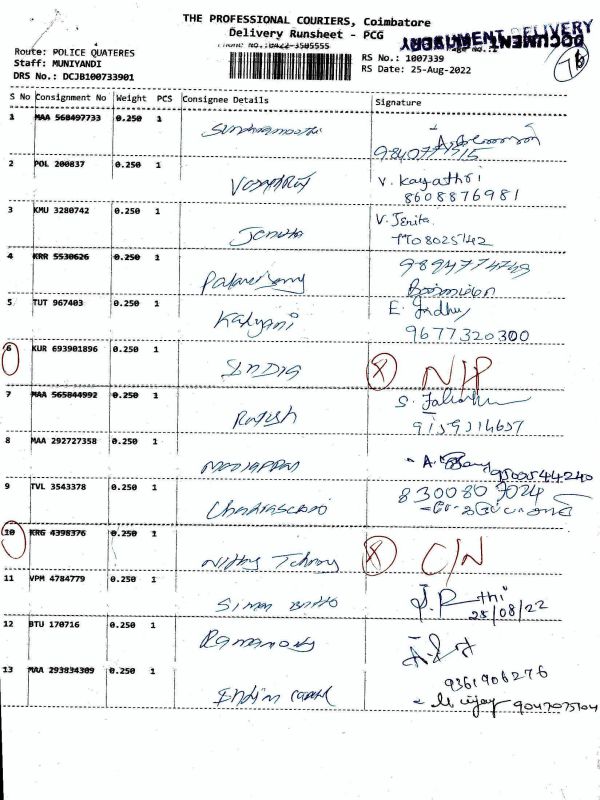 THE PROFESSIONAL COURIERS, Coimbatore
Delivery Runsheet - PCG
Phone No.:0422-3505555
DOCUMENT DELIVERY
Route: POLICE QUATERES
Staff: MUNIYANDI
DRS No.: DCJB100733901
RS No.: 1007339
RS Date: 25-Aug-2022
S No Consignment No Weight PCS Consignee Details Signature
1 MAA 560497733 0.250 1
2 POL 200837 0.250 1 V. Kayathri
8608876981
3 KMU 3280742 0.250 1 Jenita V. Jenita
7708025142
4 KRR 5530626 0.250 1 9894774749
5 TUT 967403 0.250 1 Kalyani E. Indhu
9677320300
6 KUR 693901896 0.250 1 INDIA N/P
7 MAA 565844992 0.250 1 Rajesh S.
9159314657
8 MAA 292727358 0.250 1 9500544240
9 TVL 3543378 0.250 1 8300807024
10 KRG 4398376 0.250 1 C/N
11 VPM 4784779 0.250 1 Simon Britto
25/08/22
12 BTU 170716 0.250 1
9361906276
13 MAA 293834309 0.250 1 Indian 9047075104